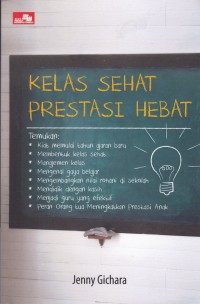 KELAS SEHAT
PRESTASI HEBAT
Temukan:
• Kiat memulai tahun ajaran baru
• Membentuk kelas sehat
• Manajemen kelas
• Mengenal gaya belajar
• Mengembangkan nilai mitani di sekolah
• Mendidik dengan kasih
• Menjadi guru yang efektif
• Peran Orang tua Meningkatkan Prestasi Anak
Jenny Gichara